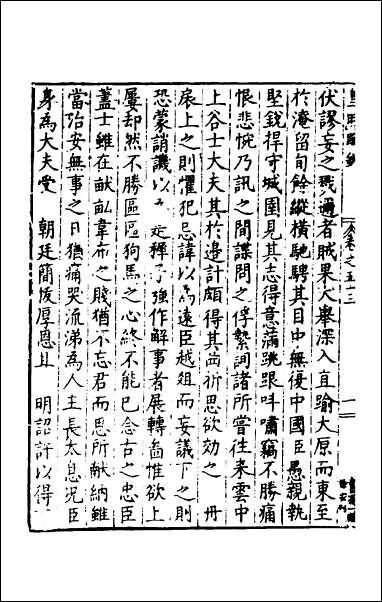 伏謬妄之戮邇者賊果大舉深入直踰大原而東至
於澮留旬餘縱橫馳騁其目中無復中國臣愚親執
堅銳捍守城圉見其志得意滿跳踉呌嘯竊不勝痛
恨悲惋乃訊之間諜問之俘縶詢諸所嘗往來雲中
上谷士大夫其於邊計頗得其崗祈思欲効之 冊
扆上之則懼犯忌諱以為遠臣越俎而妄議下之則
恐蒙誚譏以 逆禪 強作解事者展轉畜惟欲上
屢却然不勝區區狗馬之心終不能已念古之忠臣
蓋士雖在畎畝韋布之賤猶不忘君而思所献納雖
當治安無事之日猶痛哭流涕為人主長太息况臣
身為大夫受 朝廷簡恢厚恩且 明詔許以得
卷之五十三
一